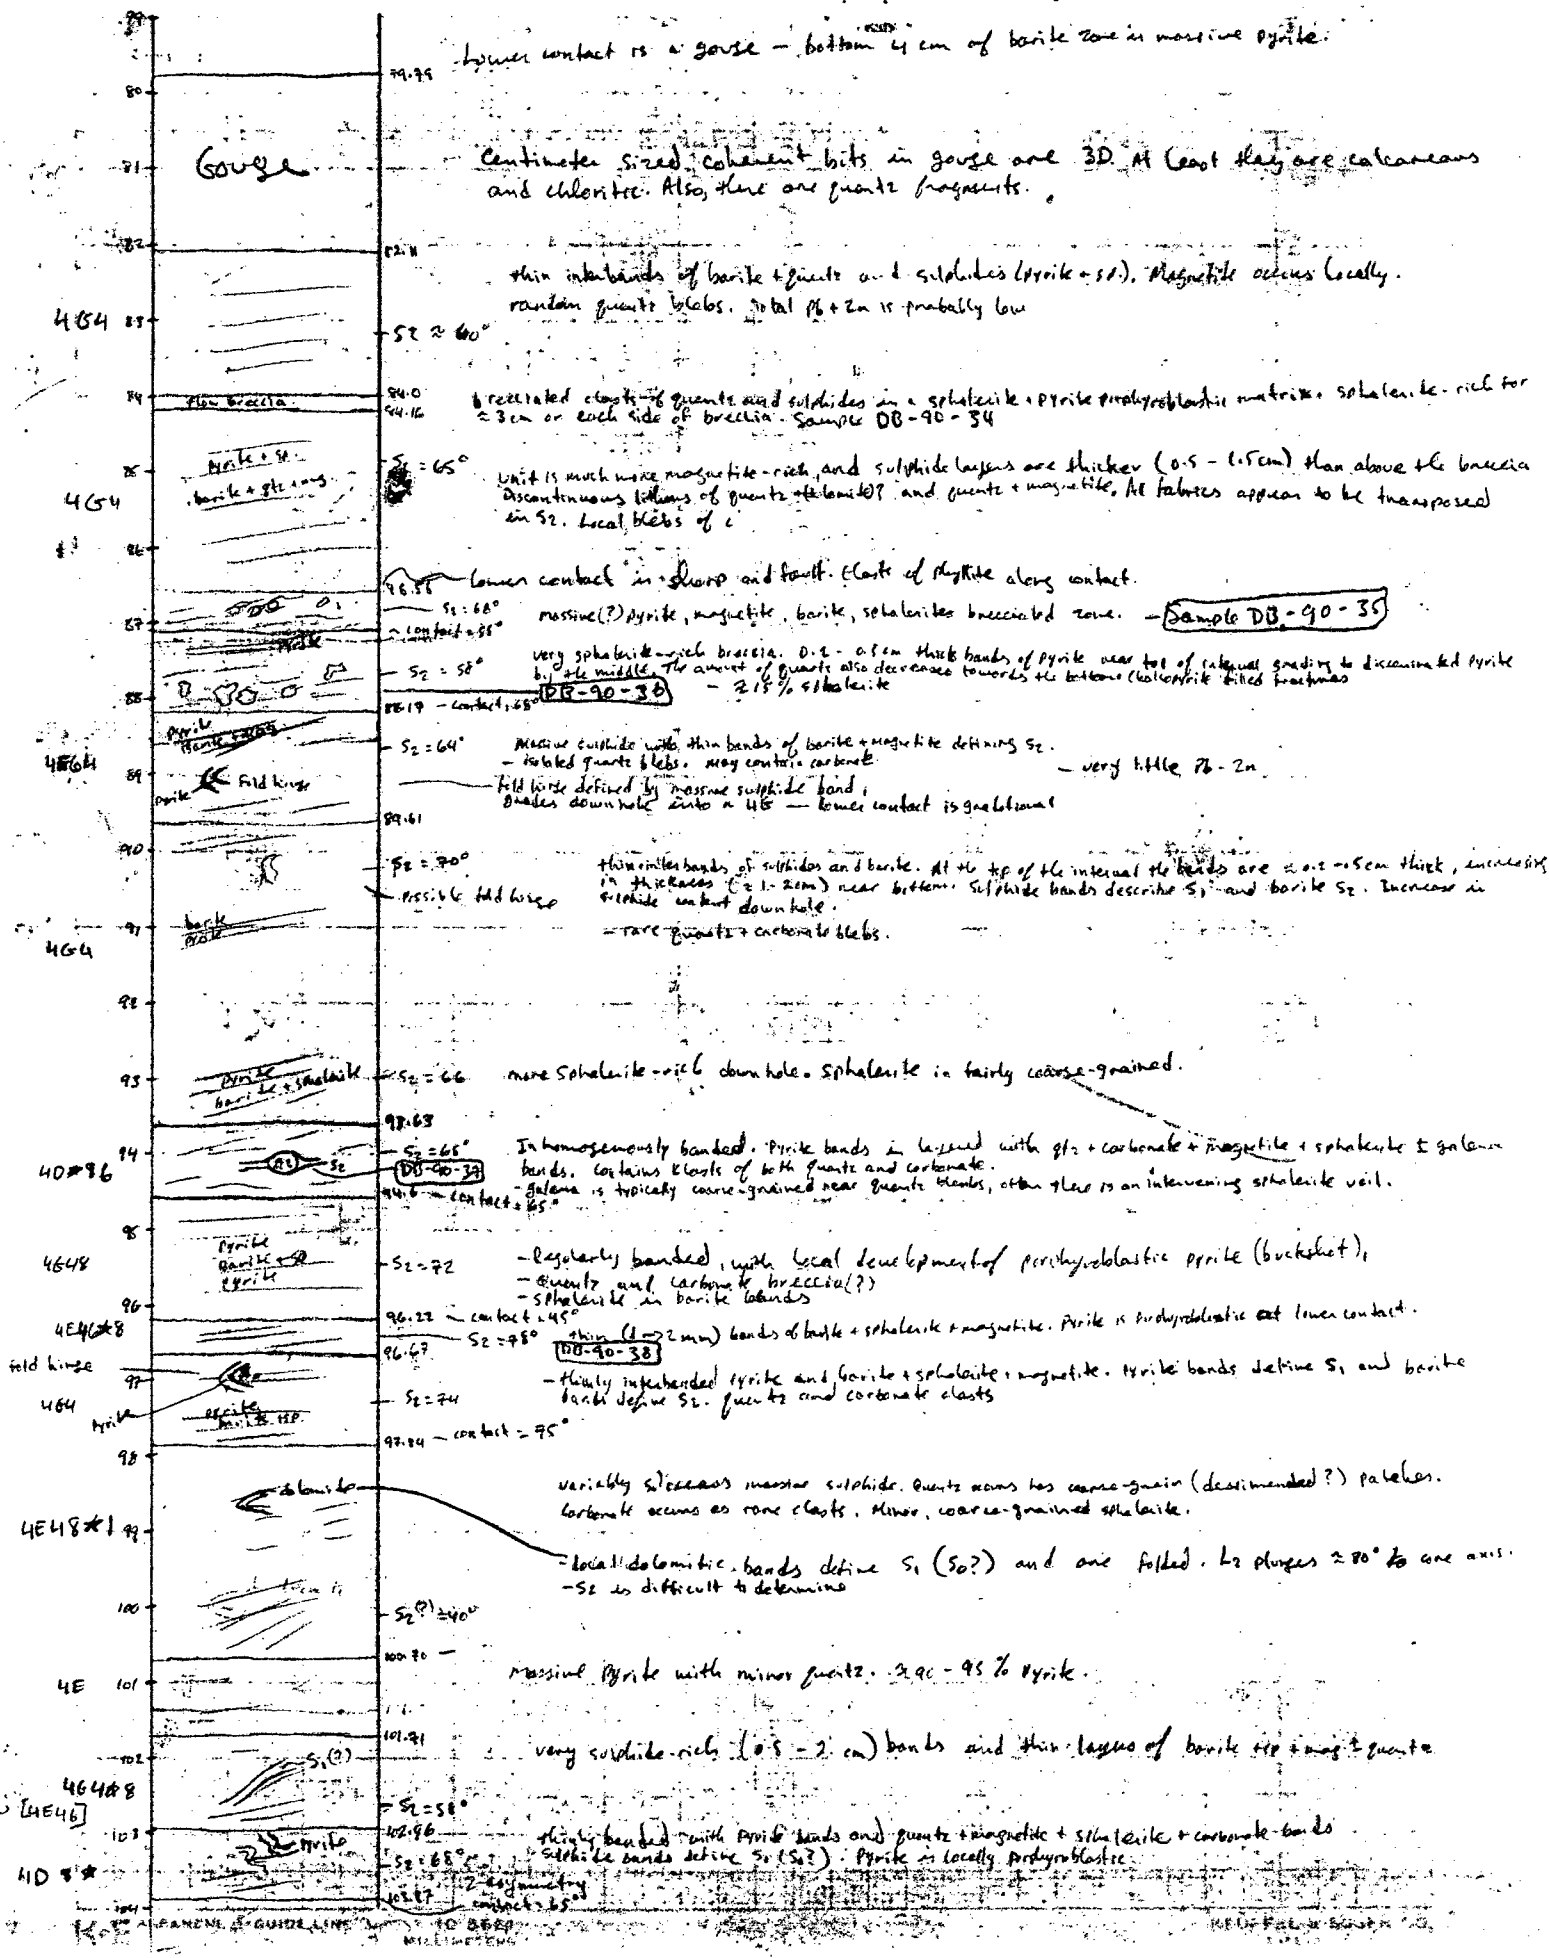 79
Lower contact is a gouge - bottom 4 cm of barite zone is massive pyrite.
79.75
80
81
Gouge
Centimeter sized coherent bits in gouge are 3D. At least they are calcareous
and chloritic. Also, there are quartz fragments.
82
82.11
thin interbands of barite + quartz and sulphides (pyrite + sp.). Magnetite occurs locally.
random quartz blebs. Total Pb + Zn is probably low
4G4
83
S2 ≈ 60°
84
flow breccia
84.0
84.16
brecciated clasts of quartz and sulphides in a sphalerite + pyrite porphyroblastic matrix. sphalerite-rich for
≈ 3cm on each side of breccia. Sample DB-90-34
pyrite + sp.
85
= 65°
barite + qtz + mag.
4G4
Unit is much more magnetite-rich, and sulphide layers are thicker (0.5 - 1.5cm) than above the breccia
Discontinuous of quartz ? and quartz + magnetite. All fabrics appear to be transposed
in S2. Local blebs of
86
86.58
Lower contact is sharp and fault. Clasts of phyllite along contact.
S2 = 68°
massive(?) pyrite, magnetite, barite, sphalerite brecciated zone. - Sample DB-90-35
87
contact = 55°
very sphalerite-rich breccia. 0.2 - 0.5cm thick bands of pyrite near top of interval grading to disseminated pyrite
S2 = 58°
by the middle. The amount of quartz also decreases towards the bottom. Chalcopyrite filled fractures
DB-90-36
- ≥15% sphalerite
88
88.17 - contact = 68°
pyrite
4E64
S2 = 64°
Massive sulphide with thin bands of barite + magnetite defining S2.
- isolated quartz blebs. may contain carbonate
- very little Pb-Zn
89
pyrite
Fold hinge
Fold hinge defined by massive sulphide band,
Grades downhole into a 4G - lower contact is gradational
89.61
90
S2 = 70°
thin interbands of sulphides and barite. At the top of the interval the bands are ≈ 0.2 - 0.5cm thick, increasing
in thickness (≈ 1-2cm) near bottom. Sulphide bands describe S1 and barite S2. Increase in
- possible fold hinge
sulphide content downhole.
- rare quartz + carbonate blebs.
barite
pyrite
91
4G4
92
93
pyrite
barite + sphalerite
S2 = 66
more sphalerite-rich downhole. Sphalerite is fairly coarse-grained.
93.63
94
S2 = 65°
Inhomogenously banded. Pyrite bands in layered with qtz + carbonate + magnetite + sphalerite ± galena
S2
DB-90-37
bands. Contains clasts of both quartz and carbonate.
94.6 - contact = 65°
- galena is typically coarse-grained near quartz blebs, often there is an intervening sphalerite veil.
95
pyrite
barite + sp
pyrite
4G48
S2 = 72
- Regularly banded, with local development of porphyroblastic pyrite (buckshot),
- Quartz and carbonate breccia(?)
- Sphalerite in barite bands
96
96.22 - contact = 45°
S2 = 78°
thin (1→2 mm) bands of barite + sphalerite + magnetite. Pyrite is porphyroblastic at lower contact.
96.67
DB-90-38
fold hinge
97
- thinly interbanded pyrite and barite + sphalerite + magnetite. Pyrite bands define S1 and barite
bands define S2. quartz and carbonate clasts
4G4
S2 = 74
pyrite
97.84 - contact = 75°
98
dolomite
variably siliceous massive sulphide. Quartz occurs as coarse-grain patches.
Carbonate occurs as rare clasts. Minor, coarse-grained sphalerite.
4E48*1
99
- Local dolomitic bands define S1 (S0?) and are folded. L2 plunges ≈ 80° to core axis.
- S2 is difficult to determine
100
S2(?) ≈ 40°
100.70
4E
101
Massive Pyrite with minor quartz. ≈ 90 - 95% pyrite.
101.71
102
very sulphide-rich (0.5 - 2 cm) bands and thin layers of barite + sp + mag ± quartz
S1(?)
[4E46]
S2 = 58°
102.96
103
pyrite
thinly banded with pyrite bands and quartz + magnetite + sphalerite + carbonate bands
S2 = 68°
Sulphide bands define S1 (S0?). Pyrite is locally porphyroblastic
Z asymmetry
103.87
contact = 65°
104